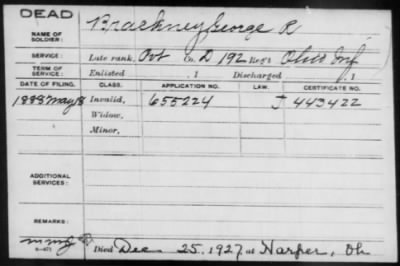 DEAD
NAME OF SOLDIER: Brackney, George R
SERVICE: Late rank, Pvt Co. D 192 Reg't Ohio Inf
TERM OF SERVICE: Enlisted , 1 Discharged , 1
DATE OF FILING. CLASS. APPLICATION NO. LAW. CERTIFICATE NO.
1888 May 18 Invalid, 655224 J 443422
Widow,
Minor,
ADDITIONAL SERVICES:
REMARKS:
Died Dec 25, 1927, at Harper, Oh